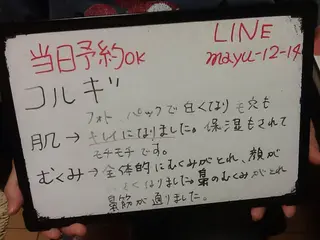 当日予約OK
LINE
mayu-12-14
コルギ
フォトパックで白くなり毛穴も
肌→キレイになりました。保湿もされて
モチモチです。
むくみ→全体的にむくみがとれ、顔が
くなりました→鼻のむくみがとれ
鼻筋が通りました。